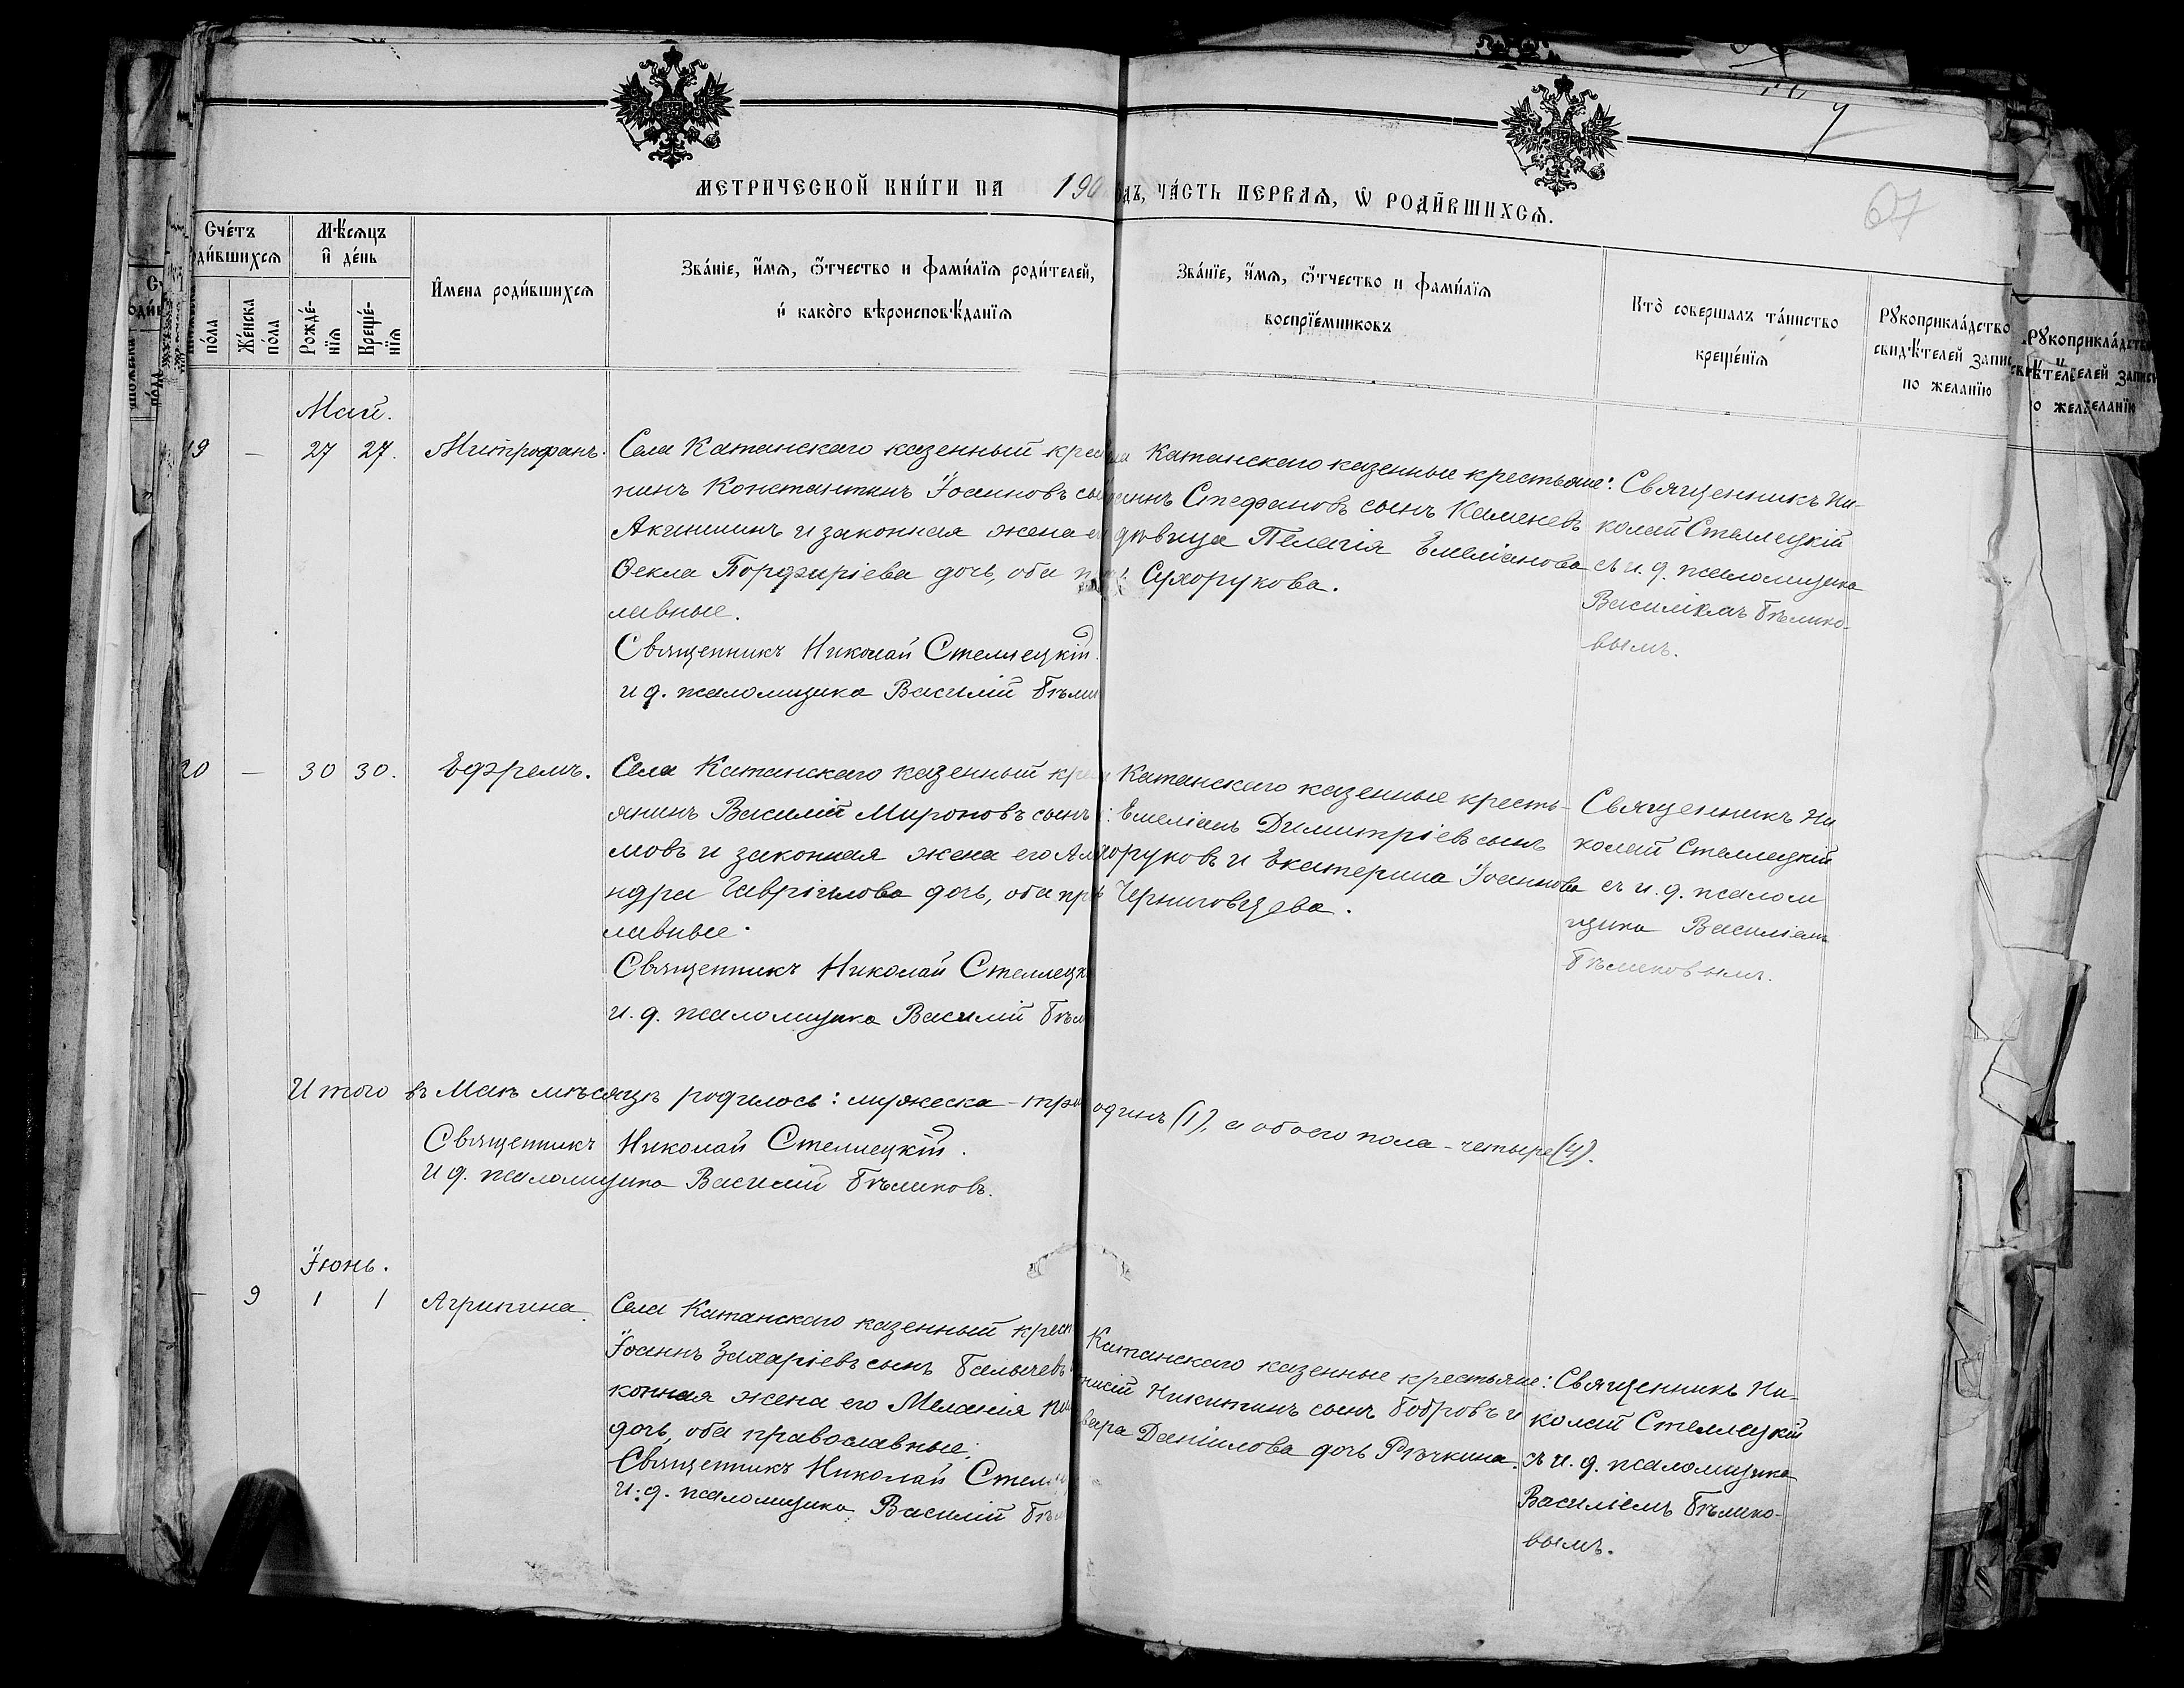 МЕТРИЧЕСКОЙ КНИ́ГИ НА 190
ЧА́СТЬ ПЕРВАѦ, Ѡ РОДИ́ВШИХСѦ.
67
Сче́тъ
роди́вшихсѧ
Мѣ́сѧцъ
и҆ де́нь
по́ла
Же́нска
по́ла
Рожде́-
нїѧ
Креще́-
нїѧ
И҆мена роди́вшихсѧ
Зва́нїе, и҆́мѧ, ѻ҆́тчество и фами́лїѧ роди́телей,
и҆ како́гѡ вѣроисповѣ́данїѧ
Зва́нїе, и҆́мѧ, ѻ҆́тчество и фами́лїѧ
воспрїе́мниковъ
Кто̀ соверша́лъ та́инство
креще́нїѧ
Рꙋкоприкла́дство
свидѣ́телей запис
по жела́нїю
Май.
19 — 27 27. Митрофанъ.
Села Катанскаго казенный крес
нинъ Константинъ Іоанновъ сы
Акиншинъ и законная жена е
Ѳекла Порфиріева дочь, оба п
лавные.
Священникъ Николай Стеллецкій.
и д. псаломщика Василій Бѣли
Катанскаго казенные крестьяне:
Стефановъ сынъ Каменевъ
дѣвица Пелагія Емеліанова
Сухорукова.
Священникъ Ни-
колай Стеллецкій
съ и. д. псаломщика
Василіемъ Бѣлико-
вымъ.
20 — 30 30. Ефремъ.
Села Катанскаго казенный крес
янинъ Василій Мироновъ сынъ
мовъ и законная жена его Але
ндра Гавріилова дочь, оба пра
лавные.
Священникъ Николай Стеллецк
и. д. псаломщика Василій Бѣл
Катанскаго казенные кресть-
: Емеліанъ Димитріевъ сынъ
хоруковъ и Екатерина Іоаннова
Черниговцева.
Священникъ Ни
колай Стеллецкій
съ и. д. псалом
щика Василіемъ
Бѣликовымъ.
Итого въ Маѣ мѣсяцѣ родилось: мужеска - тр
одинъ (1), а обоего пола - четыре (4).
Священникъ Николай Стеллецкій.
И д. псаломщика Василій Бѣликовъ.
Іюнь.
— 9 1 1 Агрипина.
Села Катанскаго казенный крест
Іоаннъ Захаріевъ сынъ Балычевъ
конная жена его Меланія
дочь, оба православные.
Священникъ Николай Стелл
И. д. псаломщика Василій Бѣл
Катанскаго казенные крестьяне:
нисій Никитинъ сынъ Бобровъ и
вара Даніилова дочь Рѣчкина.
Священникъ Ни-
колай Стеллецкій
съ и. д. псаломщика
Василіемъ Бѣлико-
вымъ.